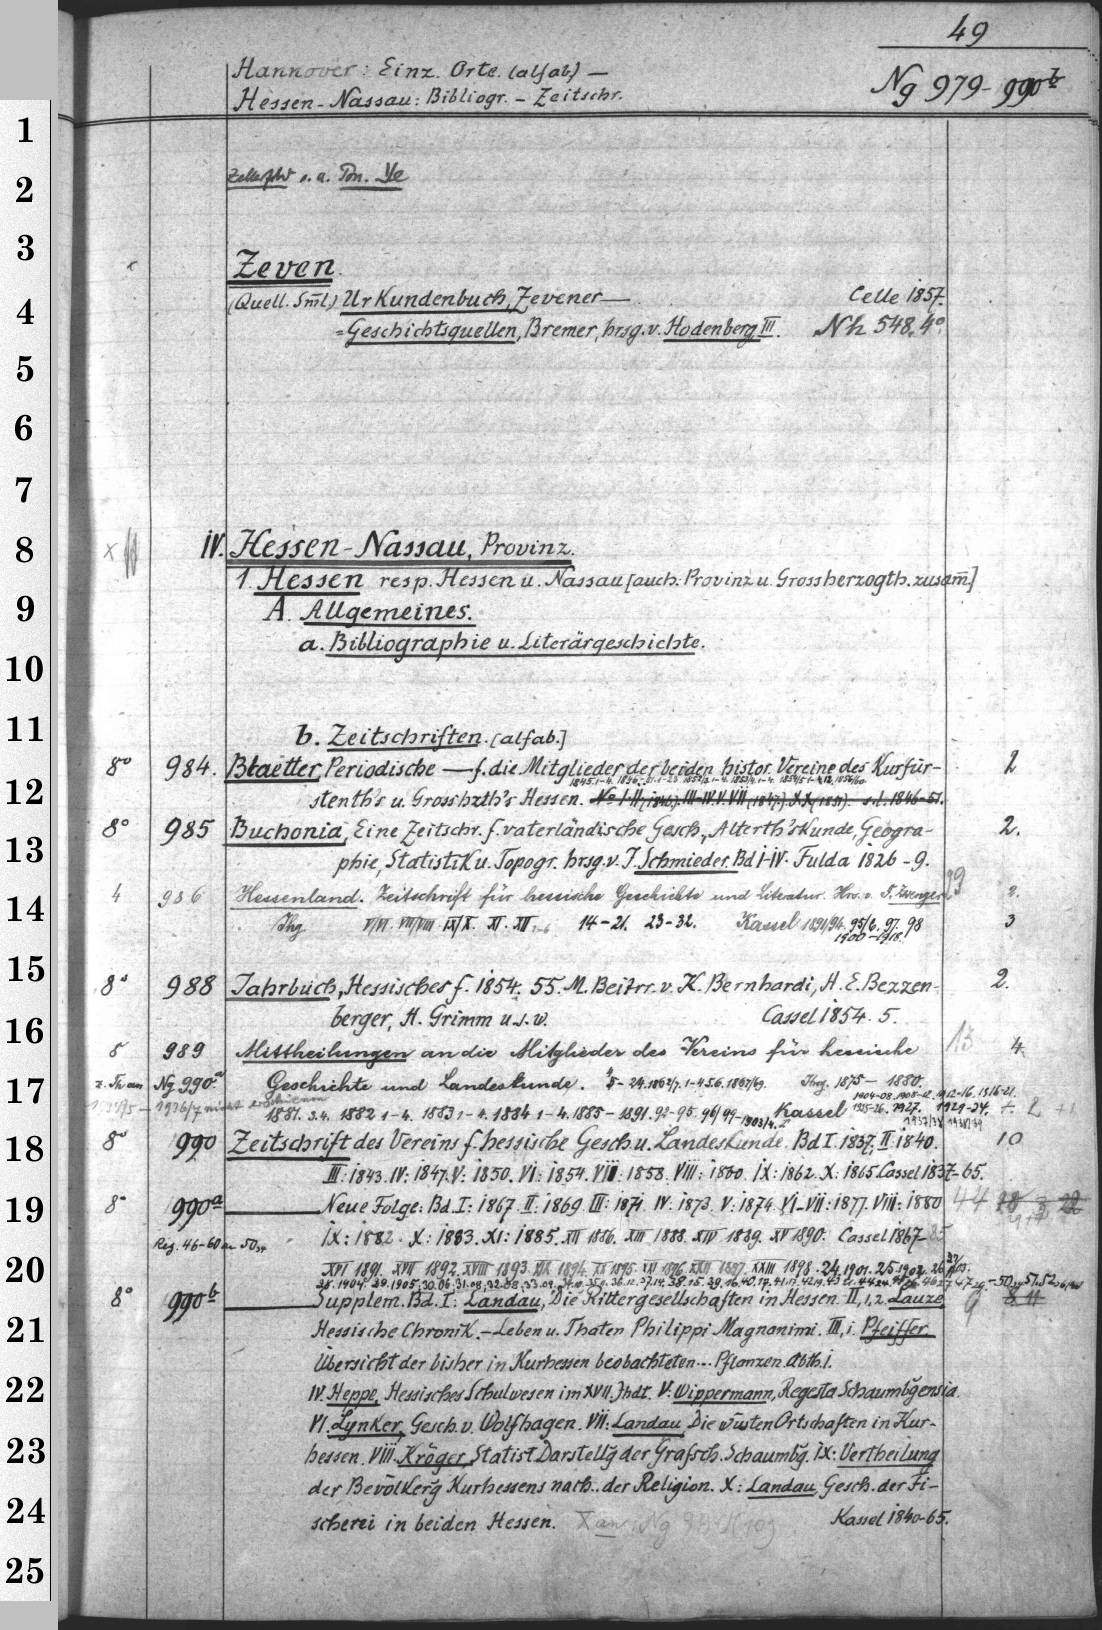 49
Hannover: Einz. Orte. (alfab) —
Ng 979-990b
Hessen-Nassau: Bibliogr. - Zeitschr.
1
2
3
Zeven.
(Quell. Sml.) Urkundenbuch, Zevener — Celle 1857.
4
=Geschichtsquellen, Bremer, hrsg. v. Hodenberg III. Nh 548. 4o
5
6
7
8 IV. Hessen-Nassau, Provinz.
1. Hessen resp. Hessen u. Nassau [auch: Provinz u. Grossherzogth. zusam̄.]
9 A. Allgemeines.
a. Bibliographie u. Literärgeschichte.
10
11 b. Zeitschriften. [alfab.]
8o 984. Blaetter, Periodische — f. die Mitglieder der beiden histor. Vereine des Kurfür- 2
12 stenth's u. Grosshzth's Hessen.
8o 985 Buchonia, Eine Zeitschr. f. vaterländische Gesch., Alterth'skunde, Geogra- 2.
13 phie, Statistik u. Topogr. hrsg. v. J. Schmieder. Bd I-IV. Fulda 1826-9.
4 986 Hessenland. Zeitschrift für hessische Geschichte und Literatur. Hrs. v. F. Zwenger 2.
14 Jhg. V/VI. VII/VIII. IX/X. XI. XII 14-21. 23-32. Kassel 1891/94. 95/6. 97. 98 3
1900-1918.
15 8o 988 Jahrbuch, Hessisches f. 1854. 55. M. Beitrr. v. K. Bernhardi, H. E. Bezzen- 2.
16 berger, H. Grimm u.s.w. Cassel 1854. 5.
8 989 Mittheilungen an die Mitglieder des Vereins für hessische 13 4
17 Ng 990a Geschichte und Landeskunde. Jhrg. 1875 - 1880.
1881. 3.4. 1882 1-4. 1883 1-4. 1884 1-4. 1885-1891. 92-95. 96/99-1903/4. Kassel
18 8o 990 Zeitschrift des Vereins f. hessische Gesch u. Landeskunde. Bd I. 1837, II. 1840. 10
III: 1843. IV: 1847. V: 1850. VI: 1854. VII: 1858. VIII: 1860. IX: 1862. X: 1865 Cassel 1837-65.
19 8o 990a — Neue Folge: Bd. I: 1867. II: 1869. III: 1871. IV: 1873. V: 1874. VI-VII: 1877. VIII: 1880 44
Reg. 46-60 IX: 1882. X: 1883. XI: 1885. XII 1886. XIII 1888. XIV 1889. XV 1890. Cassel 1867-85
20 XVI 1891. XVII 1892. XVIII 1893. XIX 1894. XX 1895. XXI 1896. XXII 1897. XXIII 1898. 24. 1901. 25. 1902.
8o 990b — Supplem. Bd. I: Landau, Die Rittergesellschaften in Hessen. II, 1, 2. Lauze 9
21 Hessische Chronik. - Leben u. Thaten Philippi Magnanimi. III, 1. Pfeiffer
Übersicht der bisher in Kurhessen beobachteten... Pflanzen. Abth. 1.
22 IV. Heppe, Hessisches Schulwesen im XVII. Jhdt. V. Wippermann, Regesta Schaumb'gensia.
VI. Lynker, Gesch. v. Wolfhagen. VII: Landau, Die wüsten Ortschaften in Kur-
23 hessen. VIII. Kröger, Statist Darstell'g der Grafsch. Schaumb'g. IX: Vertheilung
der Bevölker'g Kurhessens nach.. der Religion. X: Landau, Gesch. der Fi-
24 scherei in beiden Hessen. Kassel 1840-65.
25